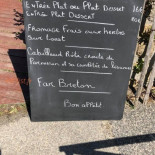 Entrée Plat ou Plat Dessert 16€
Entrée Plat Dessert
Fromage Frais aux herbes
sur toast
Cabillaud Rôti croute de
Parmesan et sa
Far Breton
Bon appétit